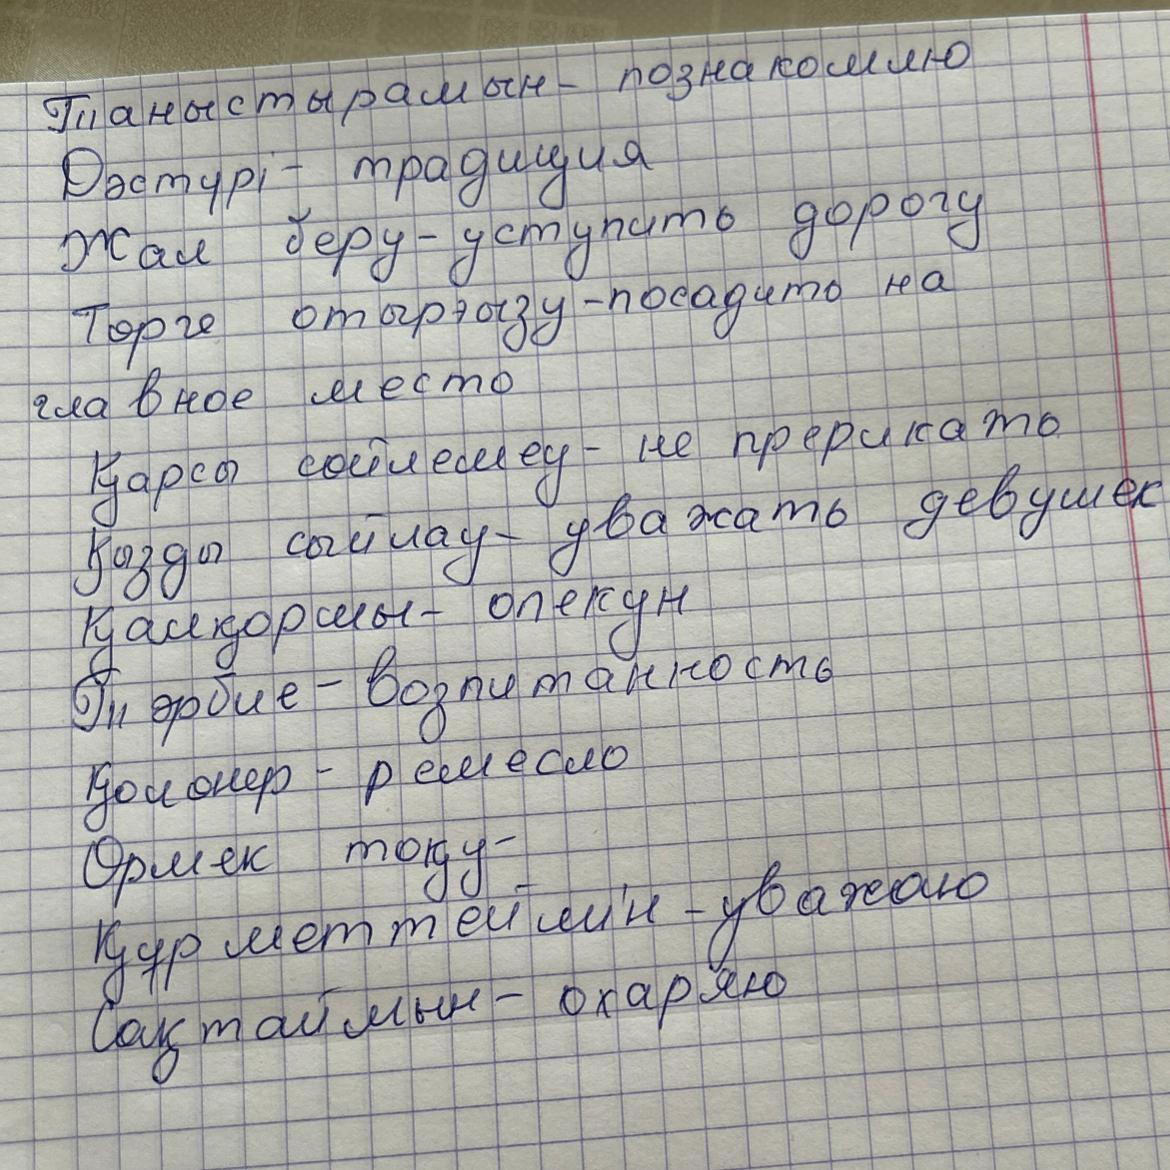 Таныстырамын- познакомлю
Дәстүрі- традиция
Жал беру- уступить дорогу
Төрге отырғызу-посадить на
главное место
Қарсы сөйлемеу- не прерикать
Қозды сыйлау- уважать девушек
Қамқоршы- опекун
Тәрбие- возпитанность
Қолонер- ремесло
Ормек тоқу-
Құрметтеймін-уважаю
Сақтаймын- охаряю